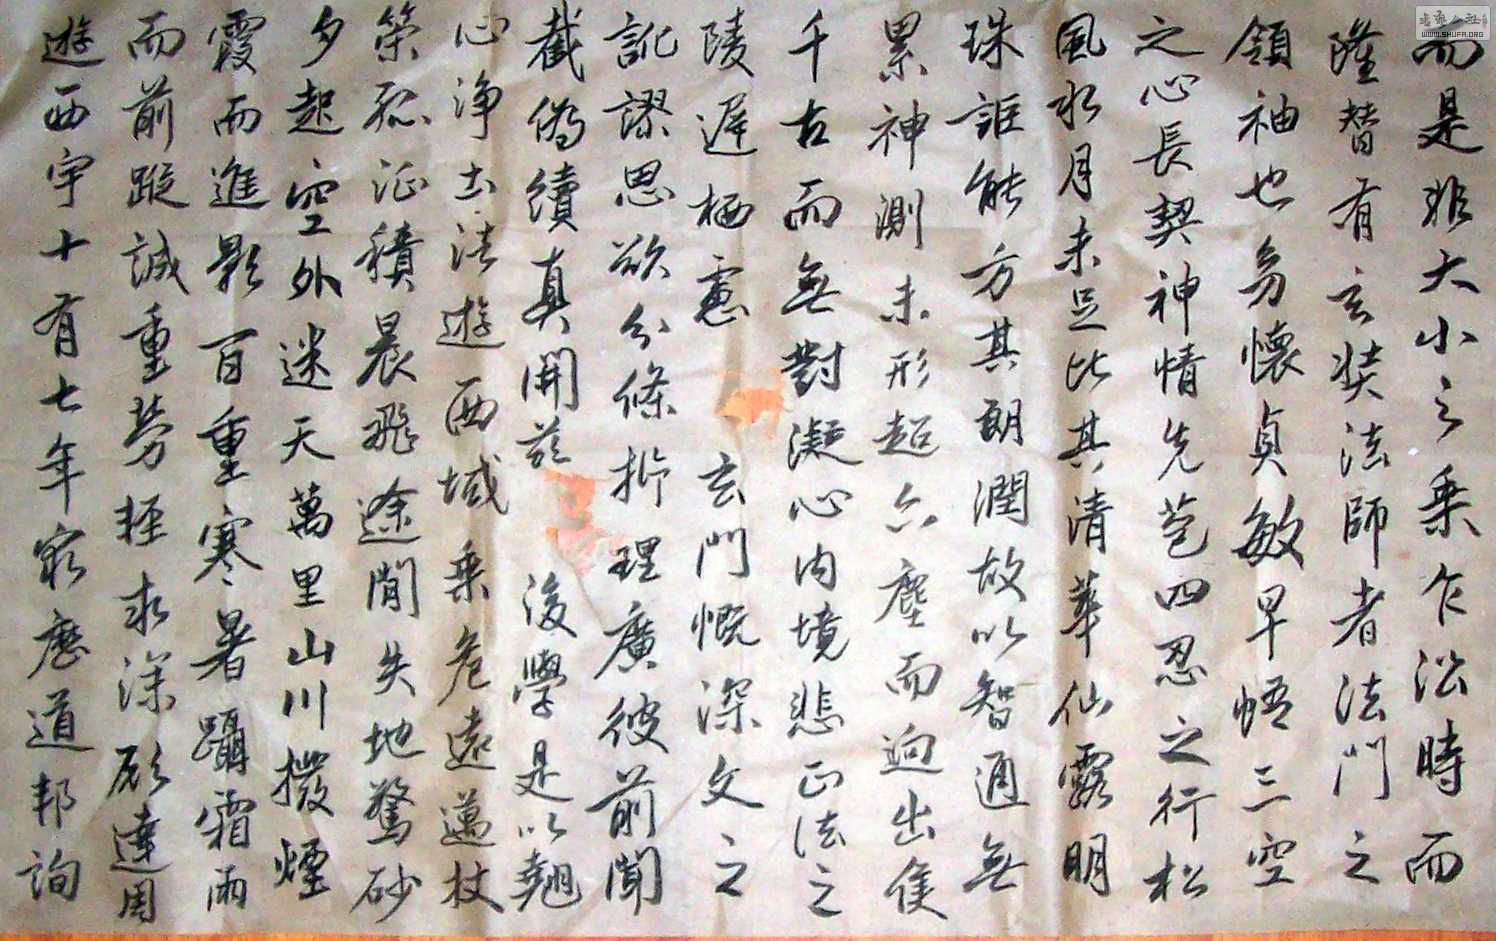 而是非大小之乘乍沿時而
隆替有玄奘法師者法門之
領袖也㓜懷貞敏早悟三空
之心長契神情先苞四忍之行松
風水月未足比其清華仙露明
珠詎能方其朗潤故以智通無
累神測未形超六塵而迥出隻
千古而無對凝心內境悲正法之
陵遲栖慮玄門慨深文之
訛謬思欲分條析理廣彼前聞
截偽續真開茲後學是以翹
心淨土法遊西域乘危遠邁杖
策孤征積晨飛途閒失地驚砂
夕起空外迷天萬里山川撥煙
霞而進影百重寒暑躡霜雨
而前蹤誠重勞輕求深願達周
遊西宇十有七年窮歷道邦詢
書法公社
WWW.SHUFA.ORG